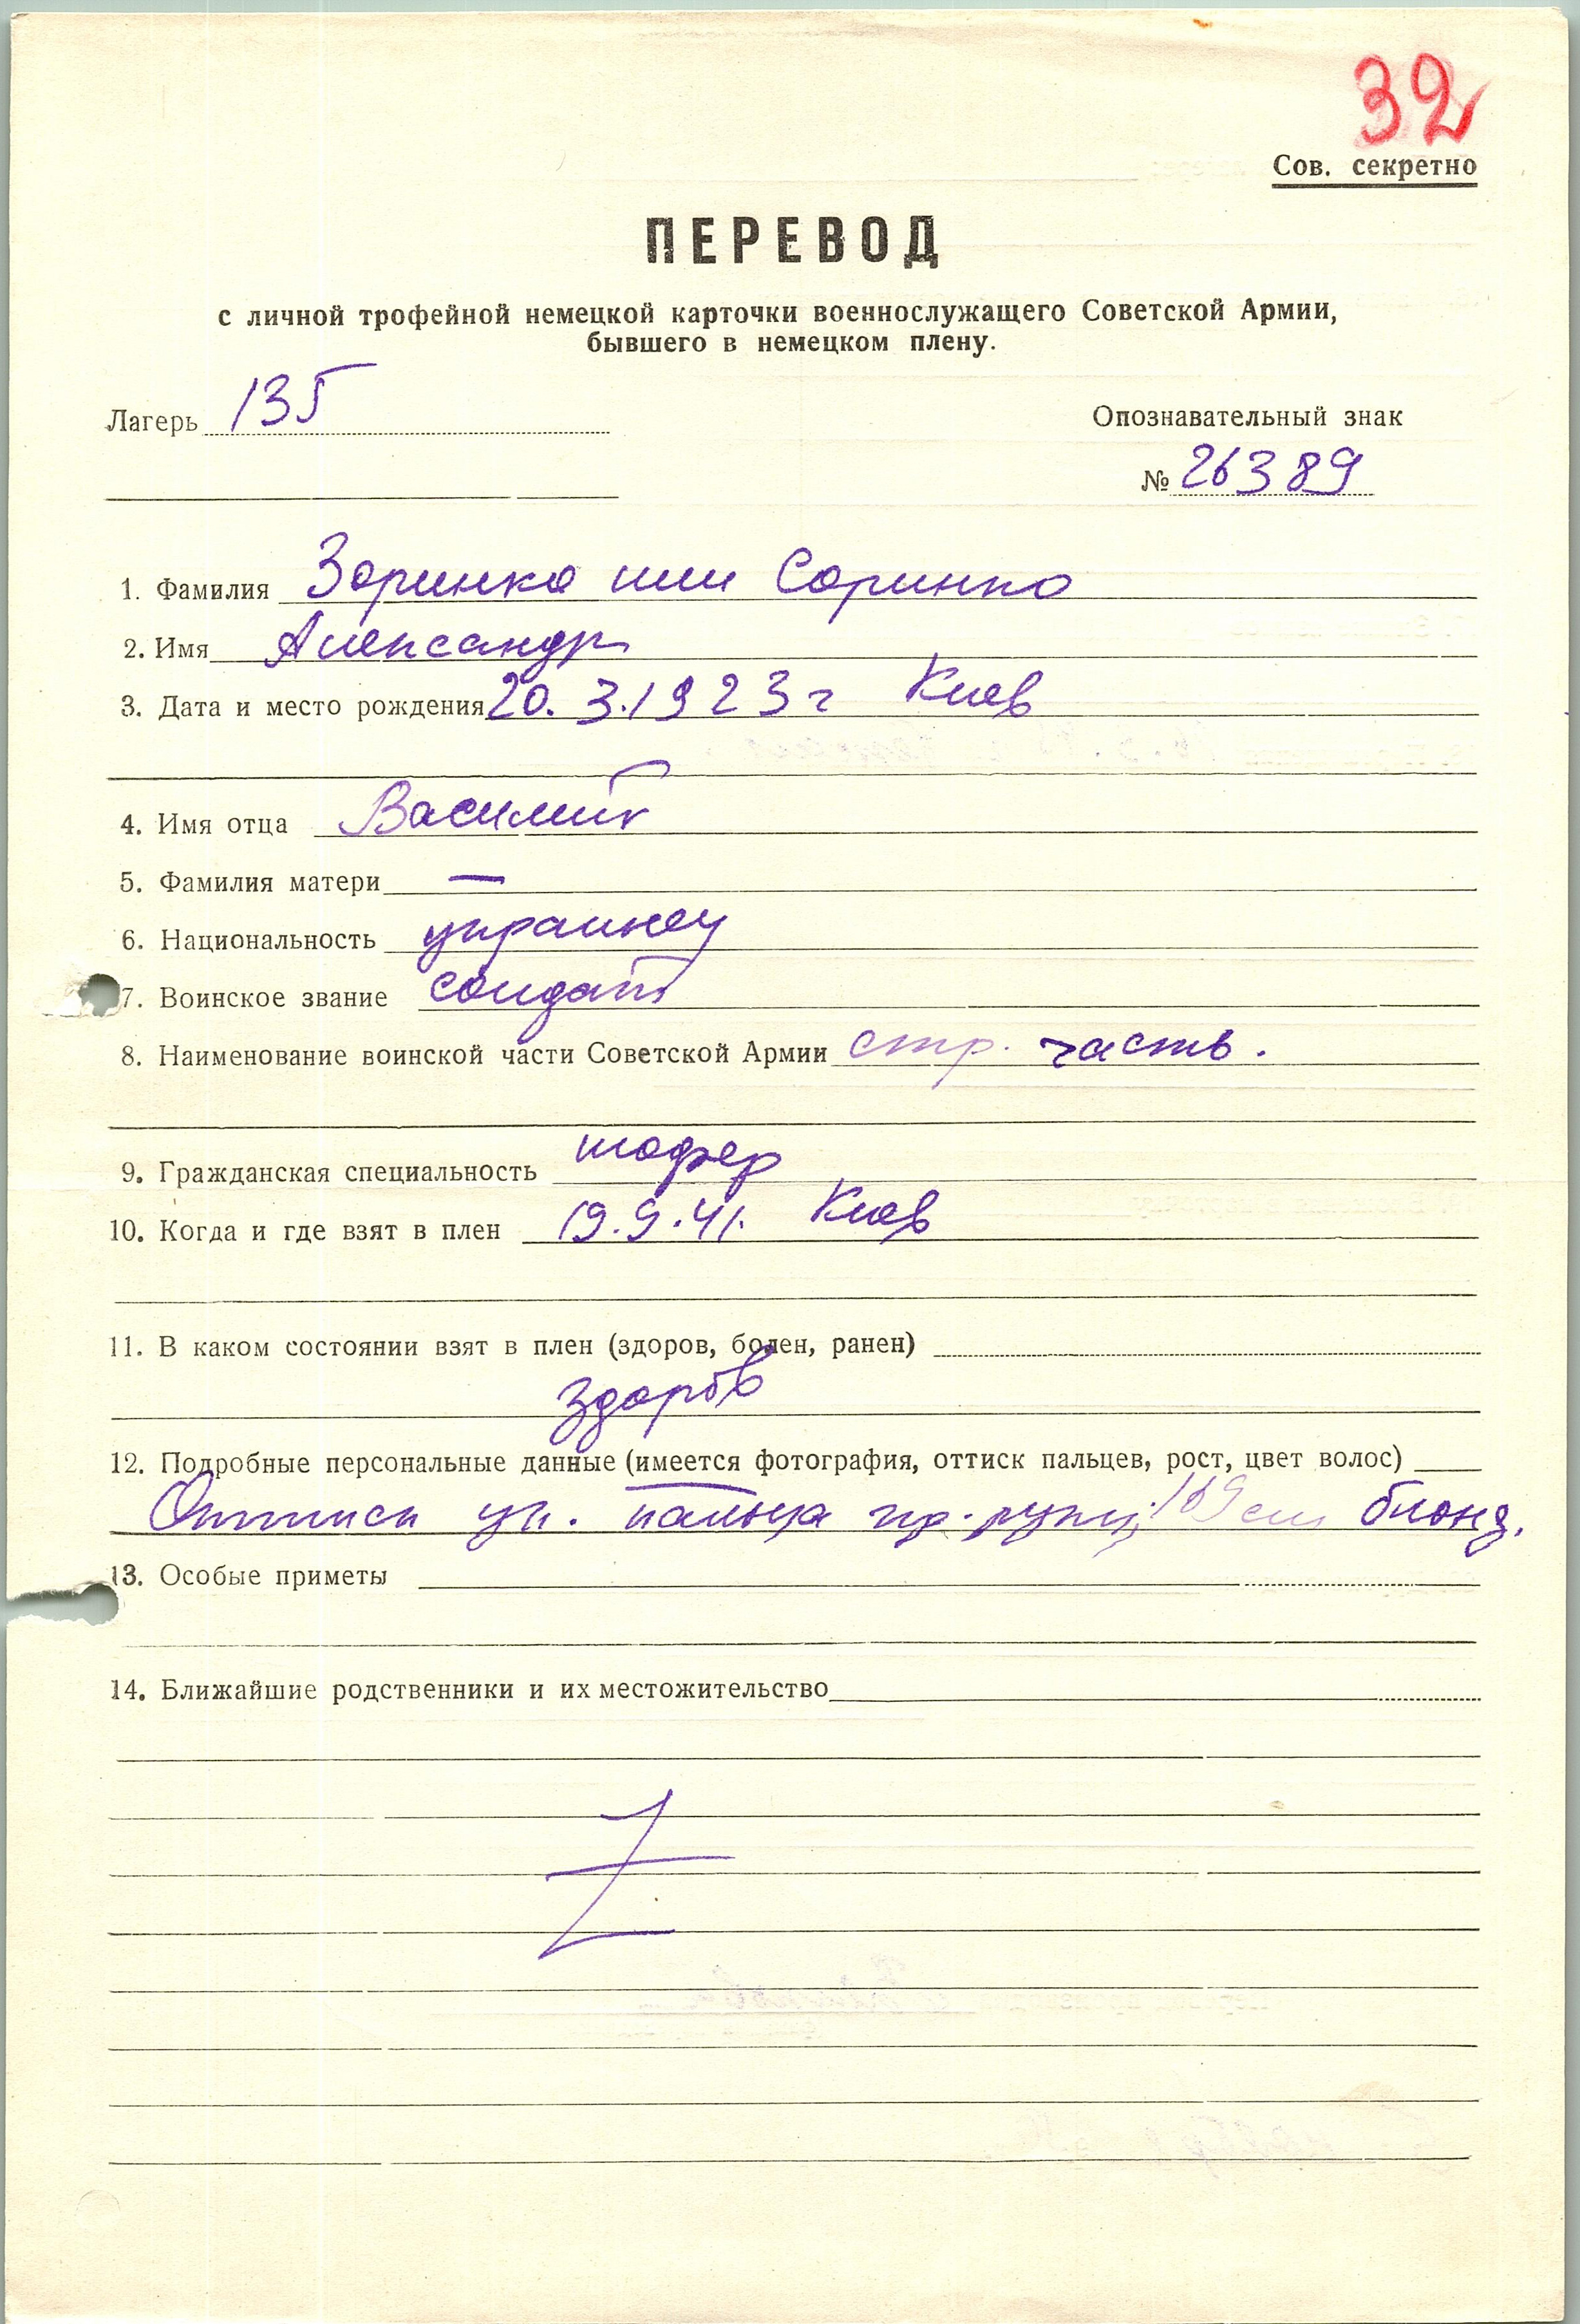 32
Сов. секретно
ПЕРЕВОД
с личной трофейной немецкой карточки военнослужащего Советской Армии,
бывшего в немецком плену.
Лагерь 135
Опознавательный знак
№ 26389
1. Фамилия Заринко или Саринко
2. Имя Александр
3. Дата и место рождения 20. 3. 1923 г Киев
4. Имя отца Василий
5. Фамилия матери —
6. Национальность украинец
7. Воинское звание солдат
8. Наименование воинской части Советской Армии стр. часть.
9. Гражданская специальность шофер
10. Когда и где взят в плен 19.9.41. Киев
11. В каком состоянии взят в плен (здоров, болен, ранен)
здоров
12. Подробные персональные данные (имеется фотография, оттиск пальцев, рост, цвет волос)
Оттиск ук. пальца пр. руки, 169 см блонд.
13. Особые приметы
14. Ближайшие родственники и их местожительство